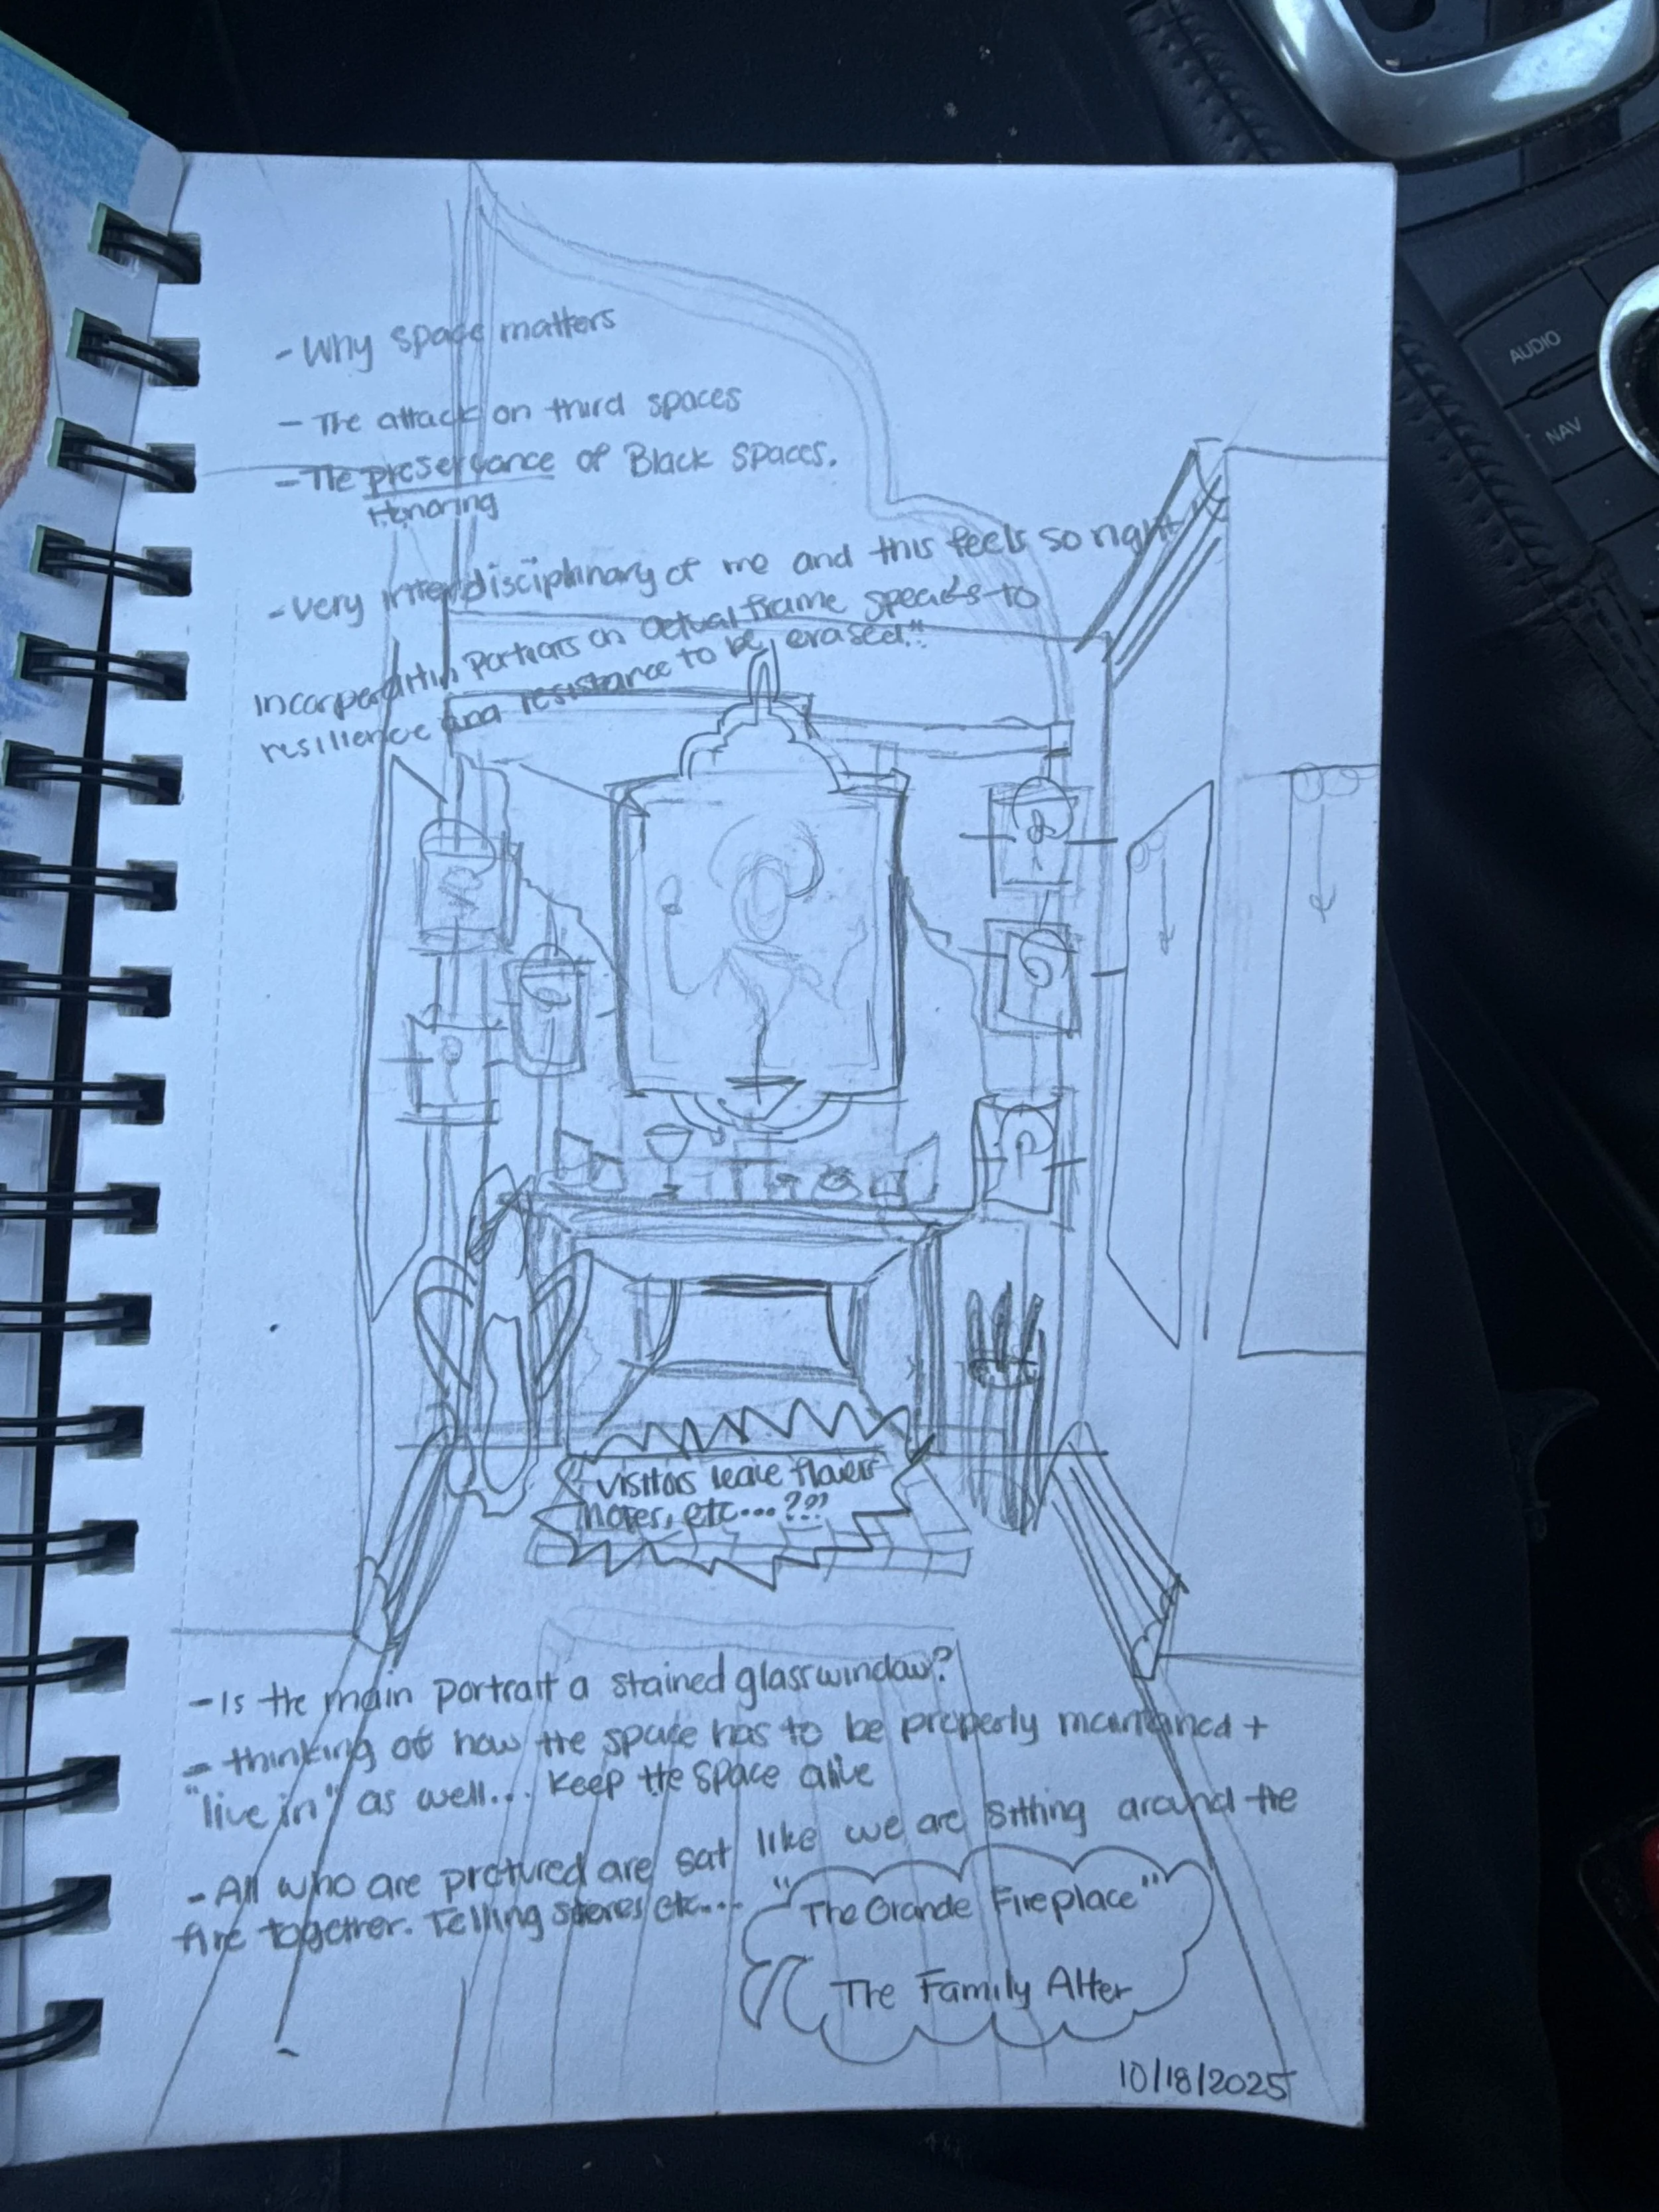 - Why space matters
- The attack on third spaces
- The preservance of Black Spaces.
Honoring
- Very interdisciplinary of me and this feels so right
Incorperatin Portraits on actual frame speaks to
resilience and resistance to be erased!!
Visitors leave flowers
notes, etc...???
- Is the main portrait a stained glass window?
- thinking of how the space has to be properly maintained +
"live in" as well... Keep the space alive
- All who are pictured are sat like we are sitting around the
fire together. Telling stories etc...
"The Grande Fireplace"
The Family Alter
10/18/2025
AUDIO
NAV